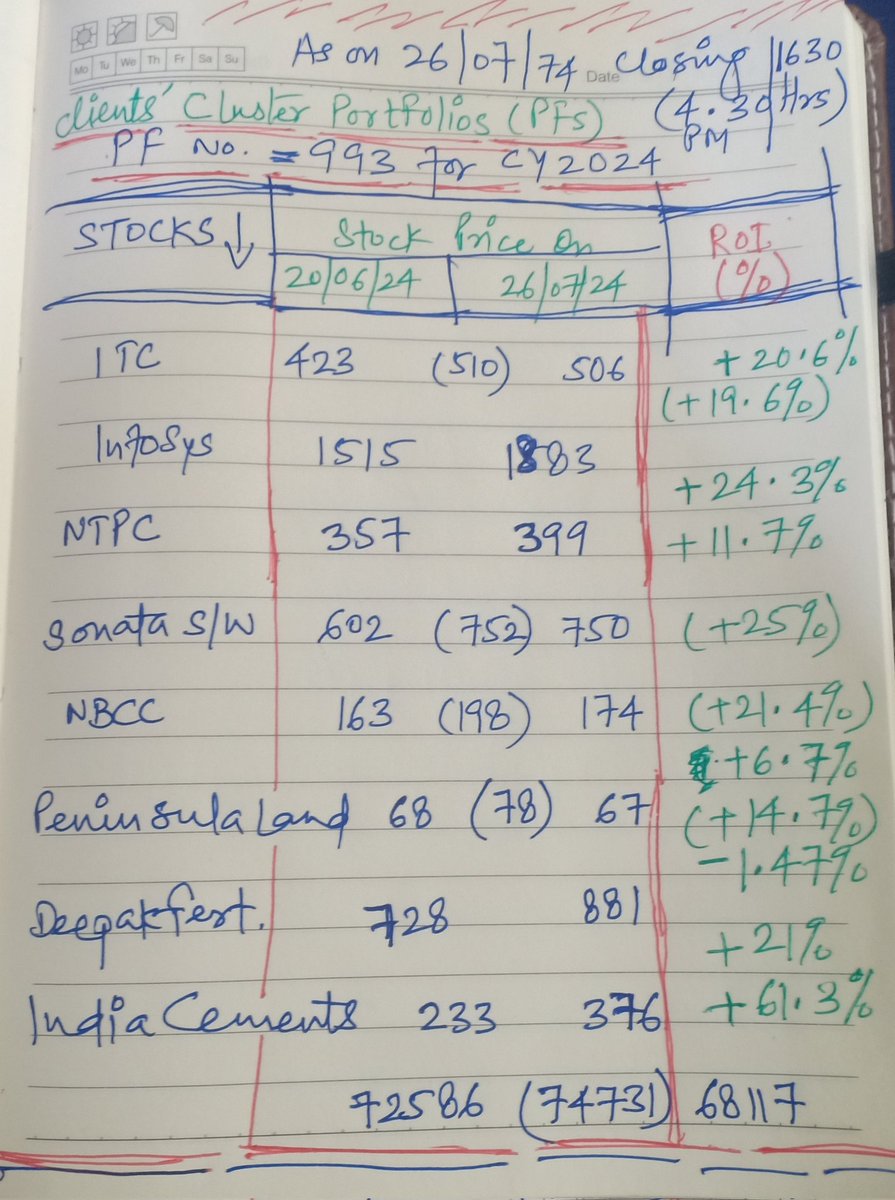 Mo Tu We Th Fr Sa Su
As on 26/07/74 Date Closing /1630
Clients' Cluster Portfolios (PFs) (4.30 Hrs)
PM
PF No. = 993 for CY2024
STOCKS ↓ Stock Price On ROI
20/06/24 26/07/24 (%)
ITC 423 (510) 506 +20.6%
(+19.6%)
Infosys 1515 1883
+24.3%
NTPC 357 399 +11.7%
Sonata S/W 602 (752) 750 (+25%)
NBCC 163 (198) 174 (+21.4%)
+6.7%
Peninsula Land 68 (78) 67 (+14.7%)
-1.47%
Deepak fert. 728 881
+21%
India Cements 233 376 +61.3%
72586 (74731) 68117